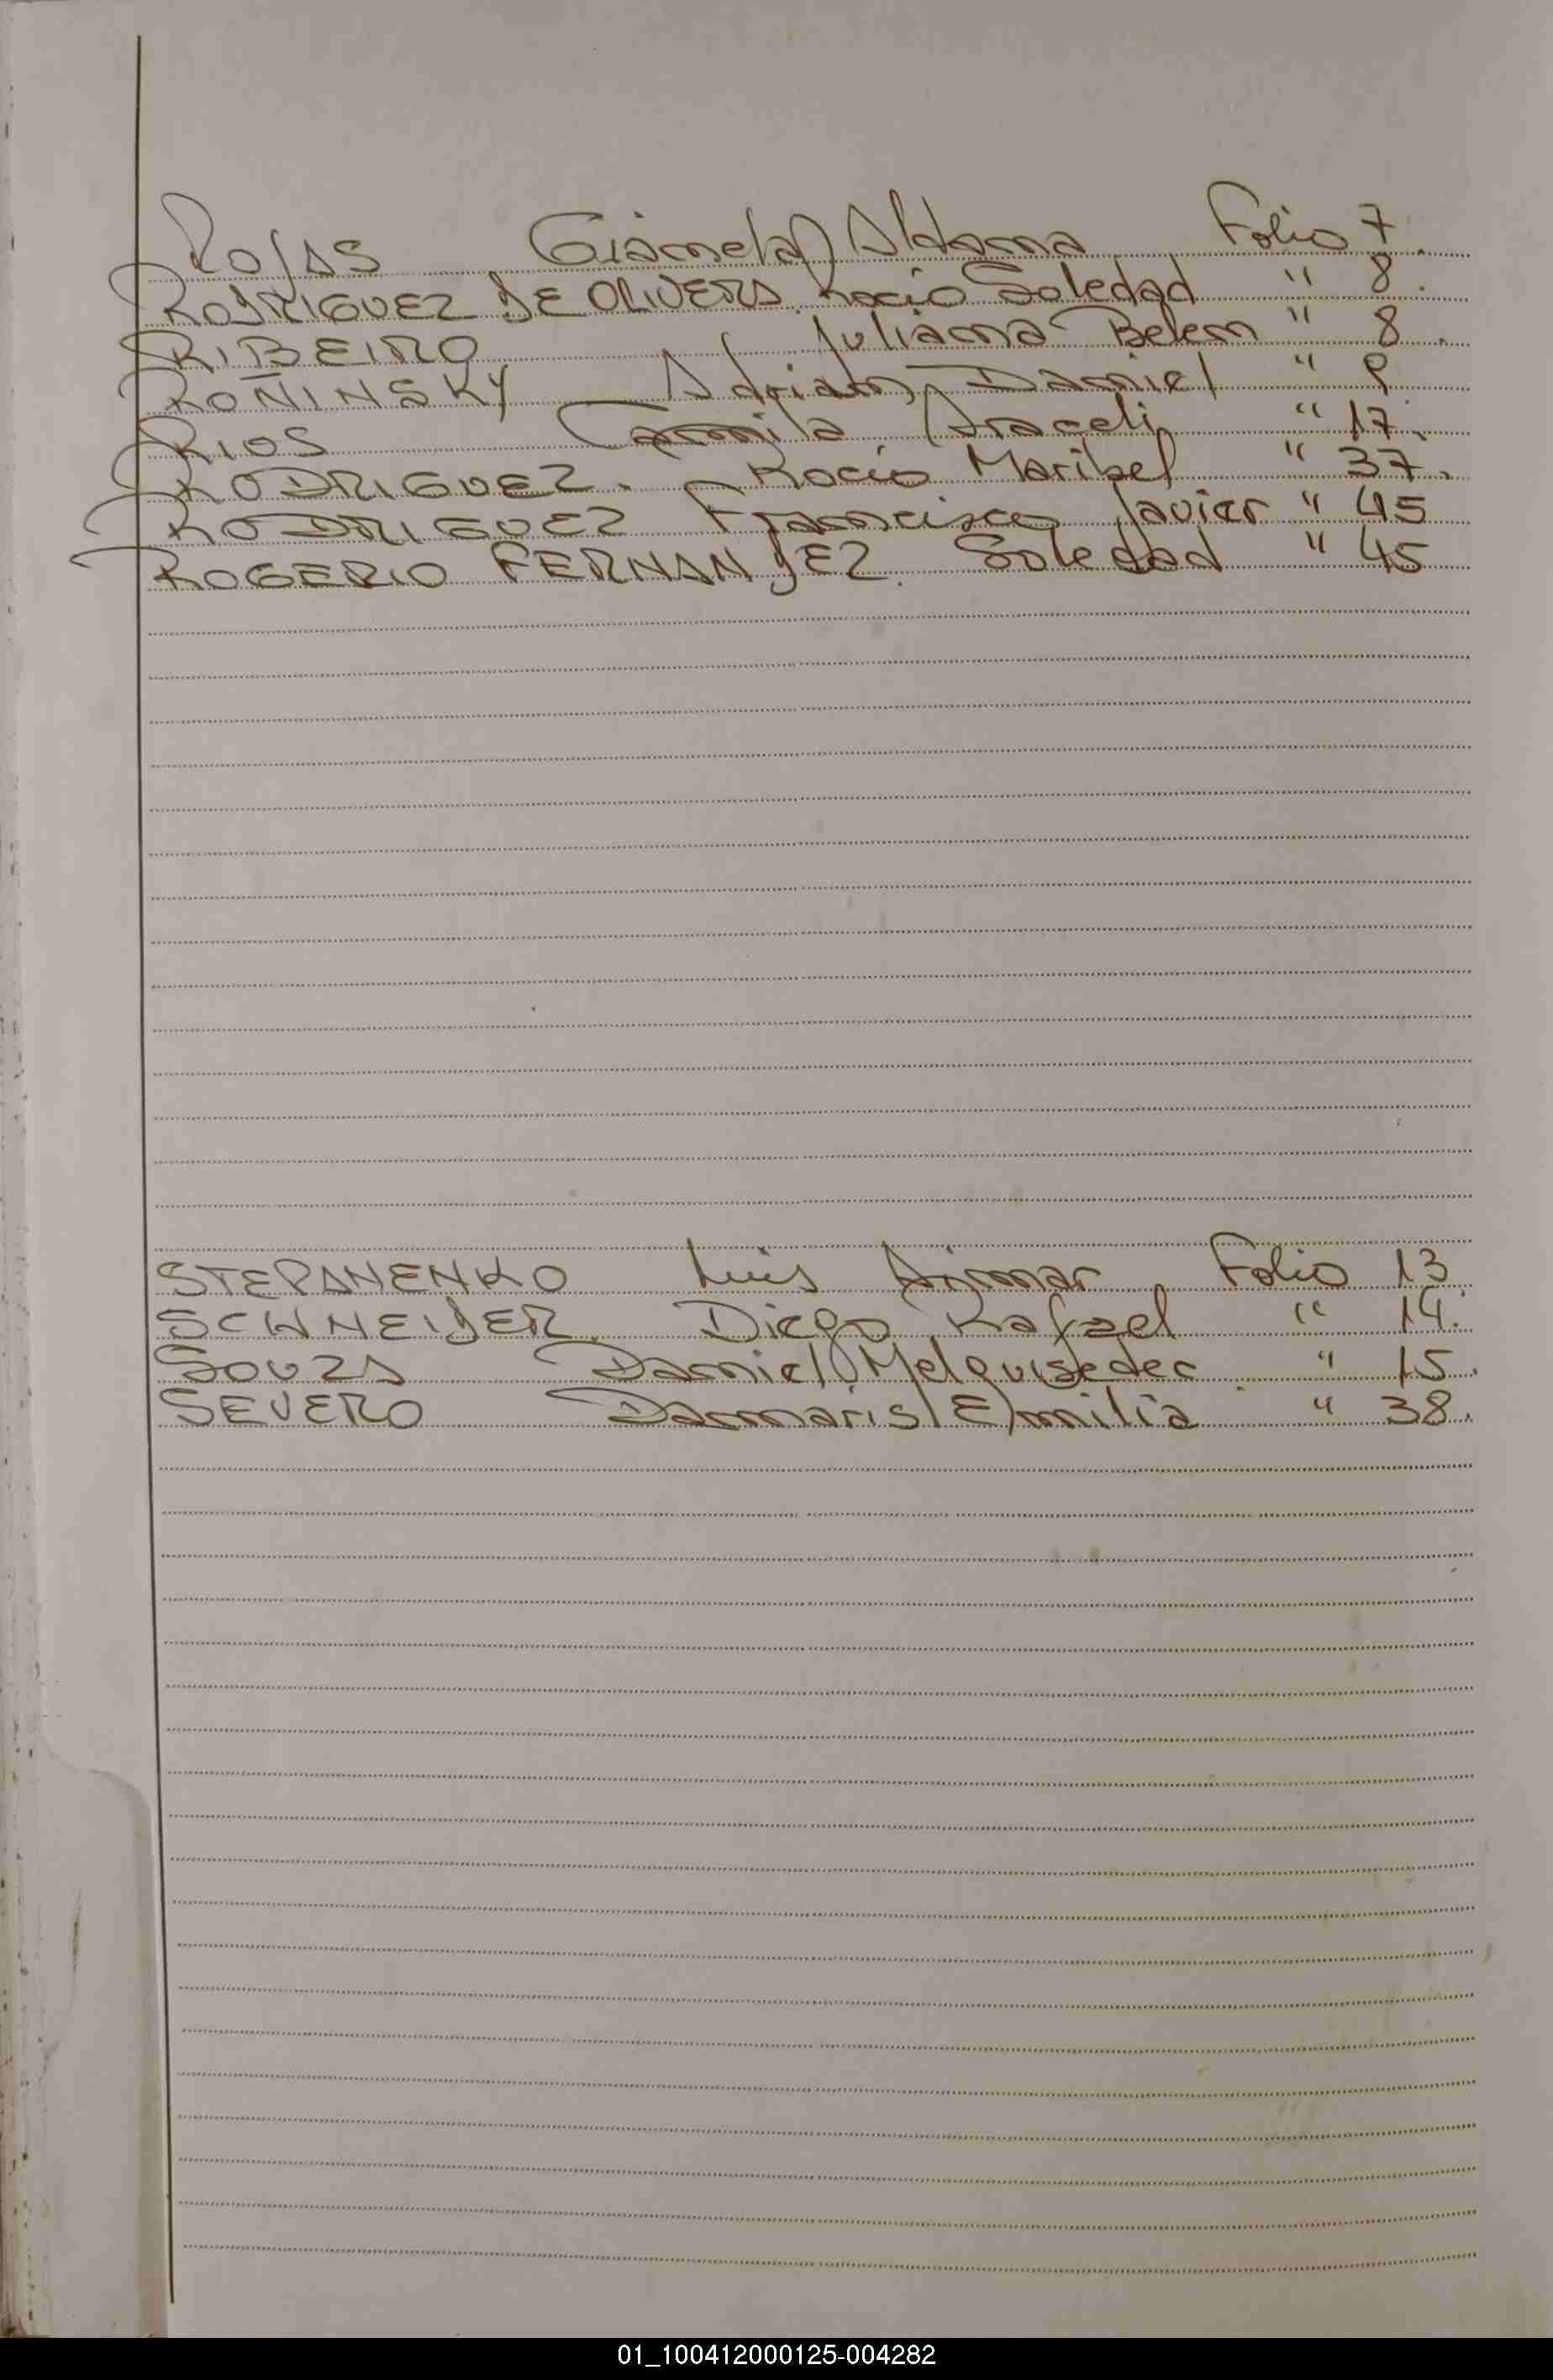 ROJAS Gianela Aldana Folio 7.
RODRIGUEZ DE OLIVERA. Rocio Soledad " 8.
RIBEIRO Juliana Belen " 8.
ROÑINSKY Adrian Daniel " 9
RIOS Camila Araceli " 17.
RODRIGUEZ. Rocio Maribel " 37.
RODRIGUEZ Francisco Javier " 45
ROGERIO FERNANDEZ. Soledad " 45
STEPANENKO Luis Folio 13
SCHNEIDER. Diego Rafael " 14.
SOUZA Daniel Melquisedec. " 15.
SEVERO Dammaris Emilia " 38.
01_100412000125-004282